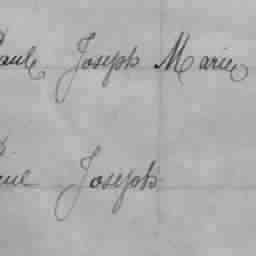 Paul Joseph Marie
Joseph